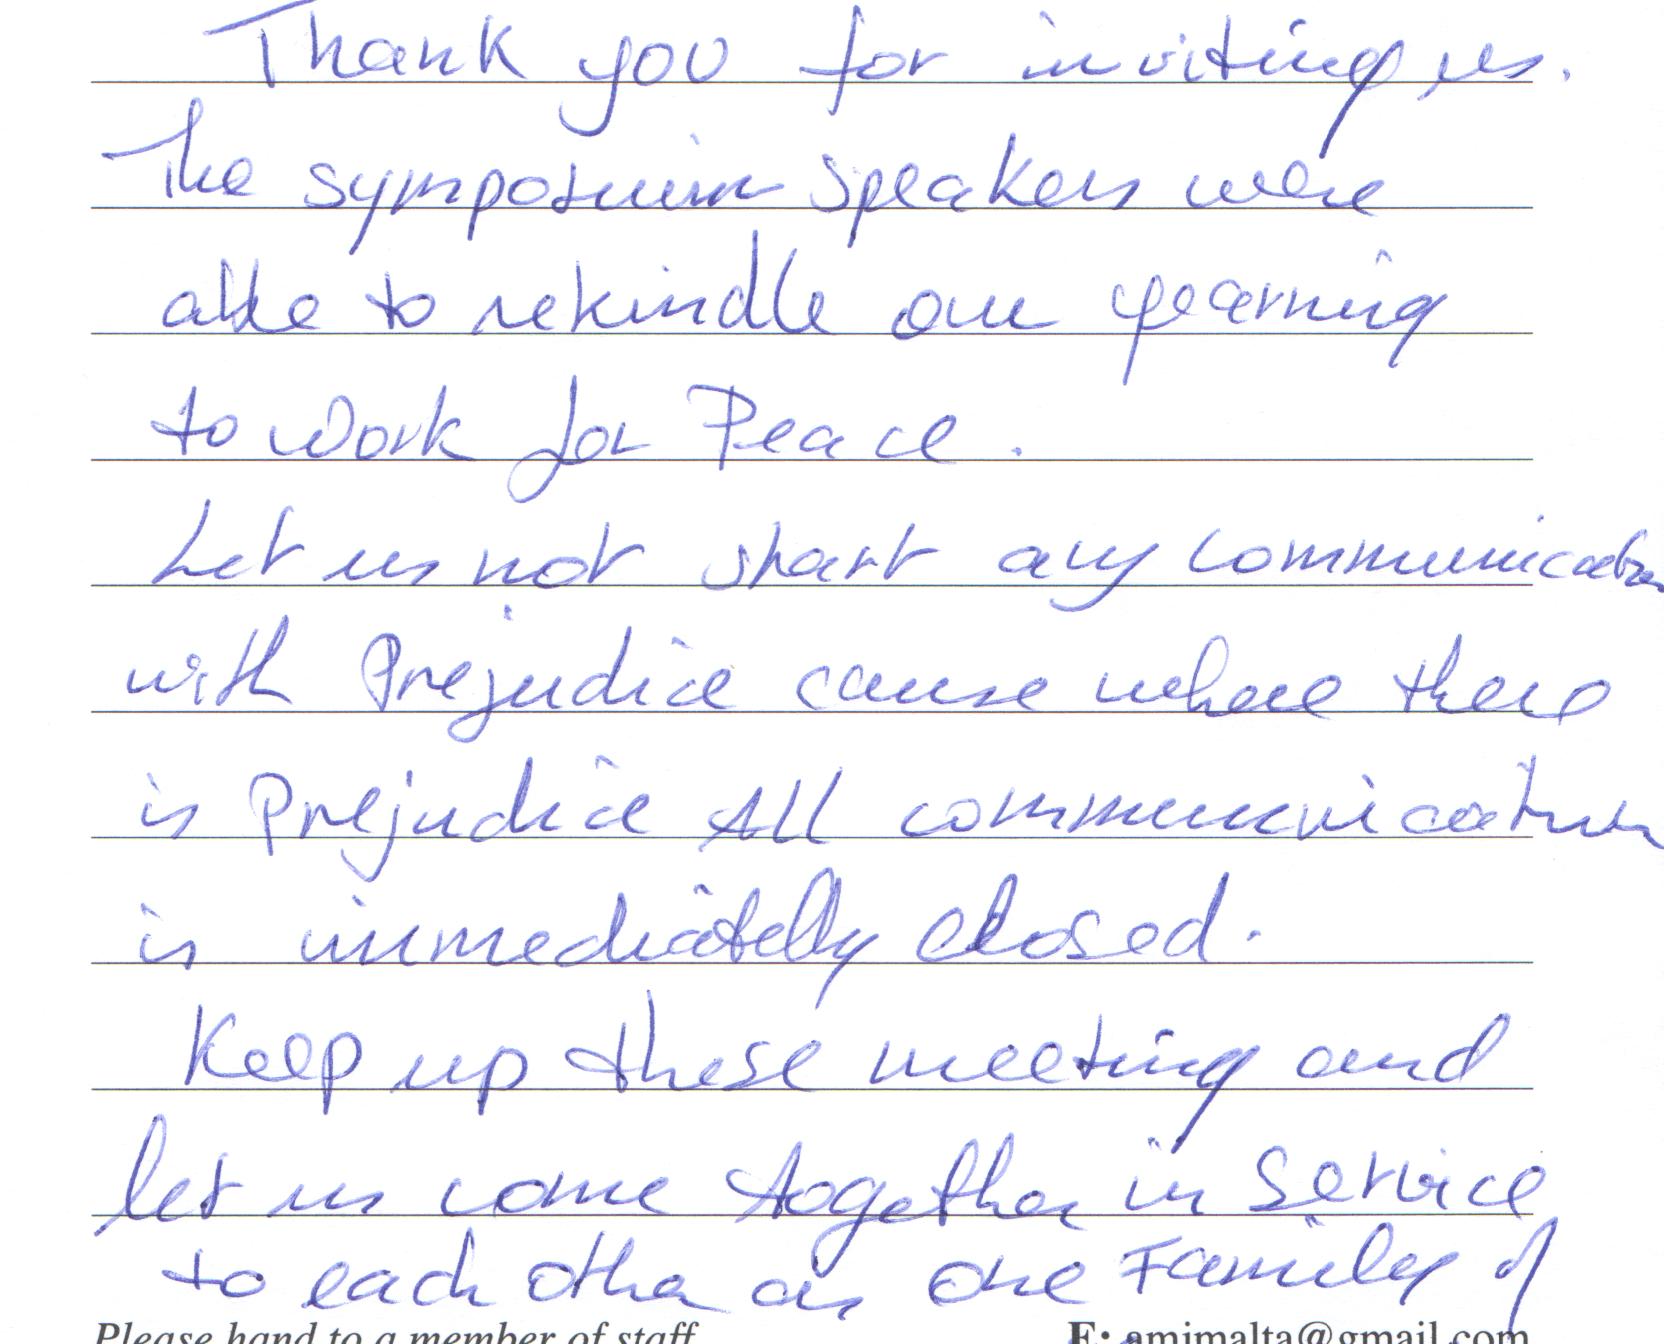 Thank you for inviting us.
The symposium speakers were
able to rekindle our yearning
to work for Peace.
Let us not start any communication
with Prejudice cause where there
is Prejudice All communication
is immediatelly closed.
Keep up these meeting and
let us come together in Service
to each other as one Family of
Please hand to a member of staff
E: amimalta@gmail.com